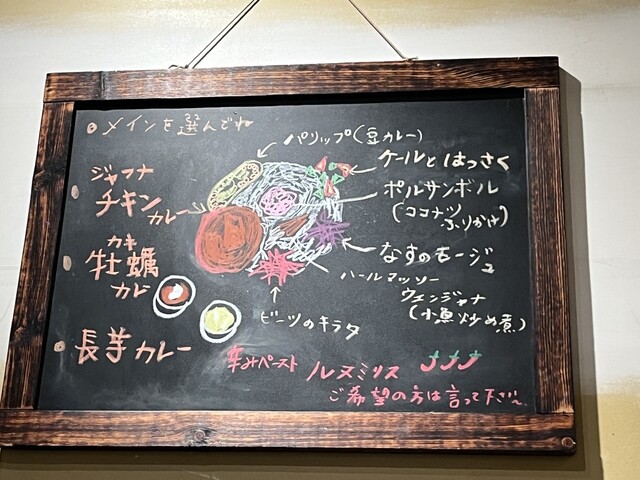 メインを選んでね
ジャフナ
チキン
カレー
カキ
牡蠣
カレー
長芋カレー
パリップ(豆カレー)
ケールとはっさく
ポルサンボル
(ココナツ
ふりかけ)
なすのモージュ
ハールマッソー
ウェンジャナ
(小魚炒め煮)
ビーツのキラタ
辛みペースト ルヌミリス
ご希望の方は言って下さい